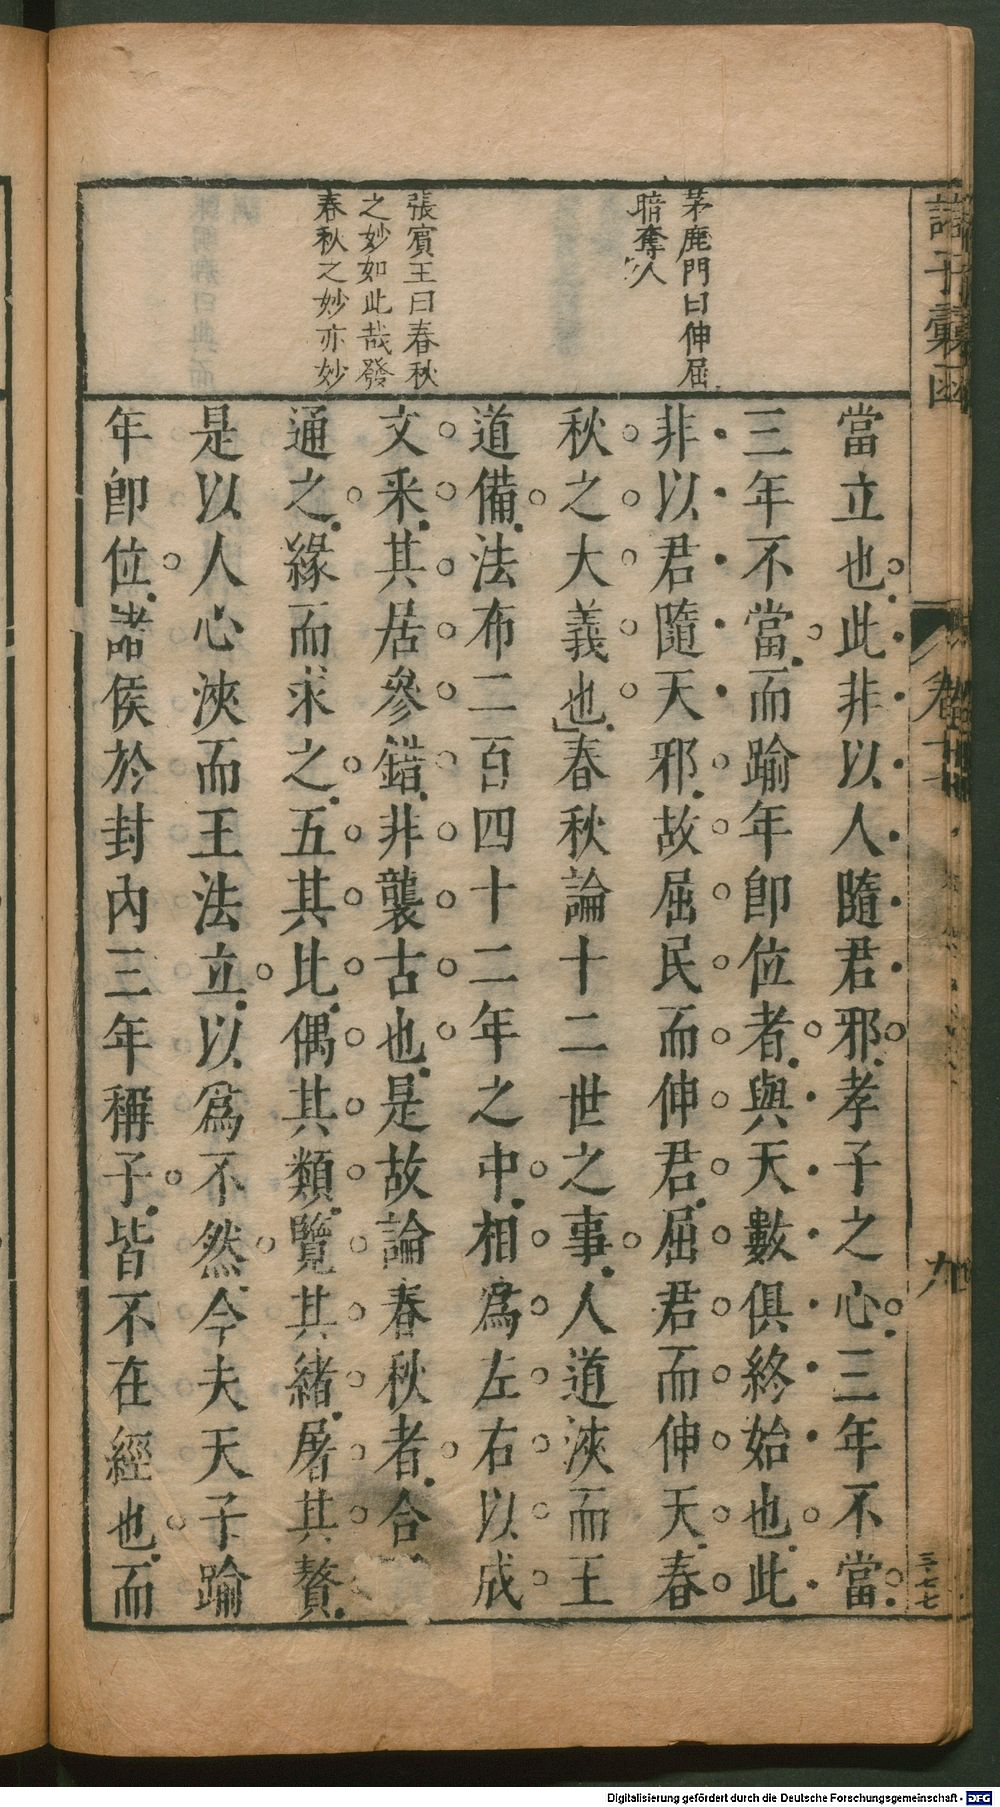 諸子彙函
卷
九
三七七
茅鹿門曰伸屈
暗奪人
張賓王曰春秋
之妙如此哉發
春秋之妙亦妙
當立也此非以人隨君邪孝子之心三年不當
三年不當而踰年即位者與天數俱終始也此
非以君隨天邪故屈民而伸君屈君而伸天春
秋之大義也春秋論十二世之事人道浹而王
道備法布二百四十二年之中相爲左右以成
文采其居參錯非襲古也是故論春秋者合
通之緣而求之五其比偶其類覽其緒屠其贅
是以人心浹而王法立以爲不然今夫天子踰
年即位諸侯於封內三年稱子皆不在經也而
Digitalisierung gefördert durch die Deutsche Forschungsgemeinschaft - DFG